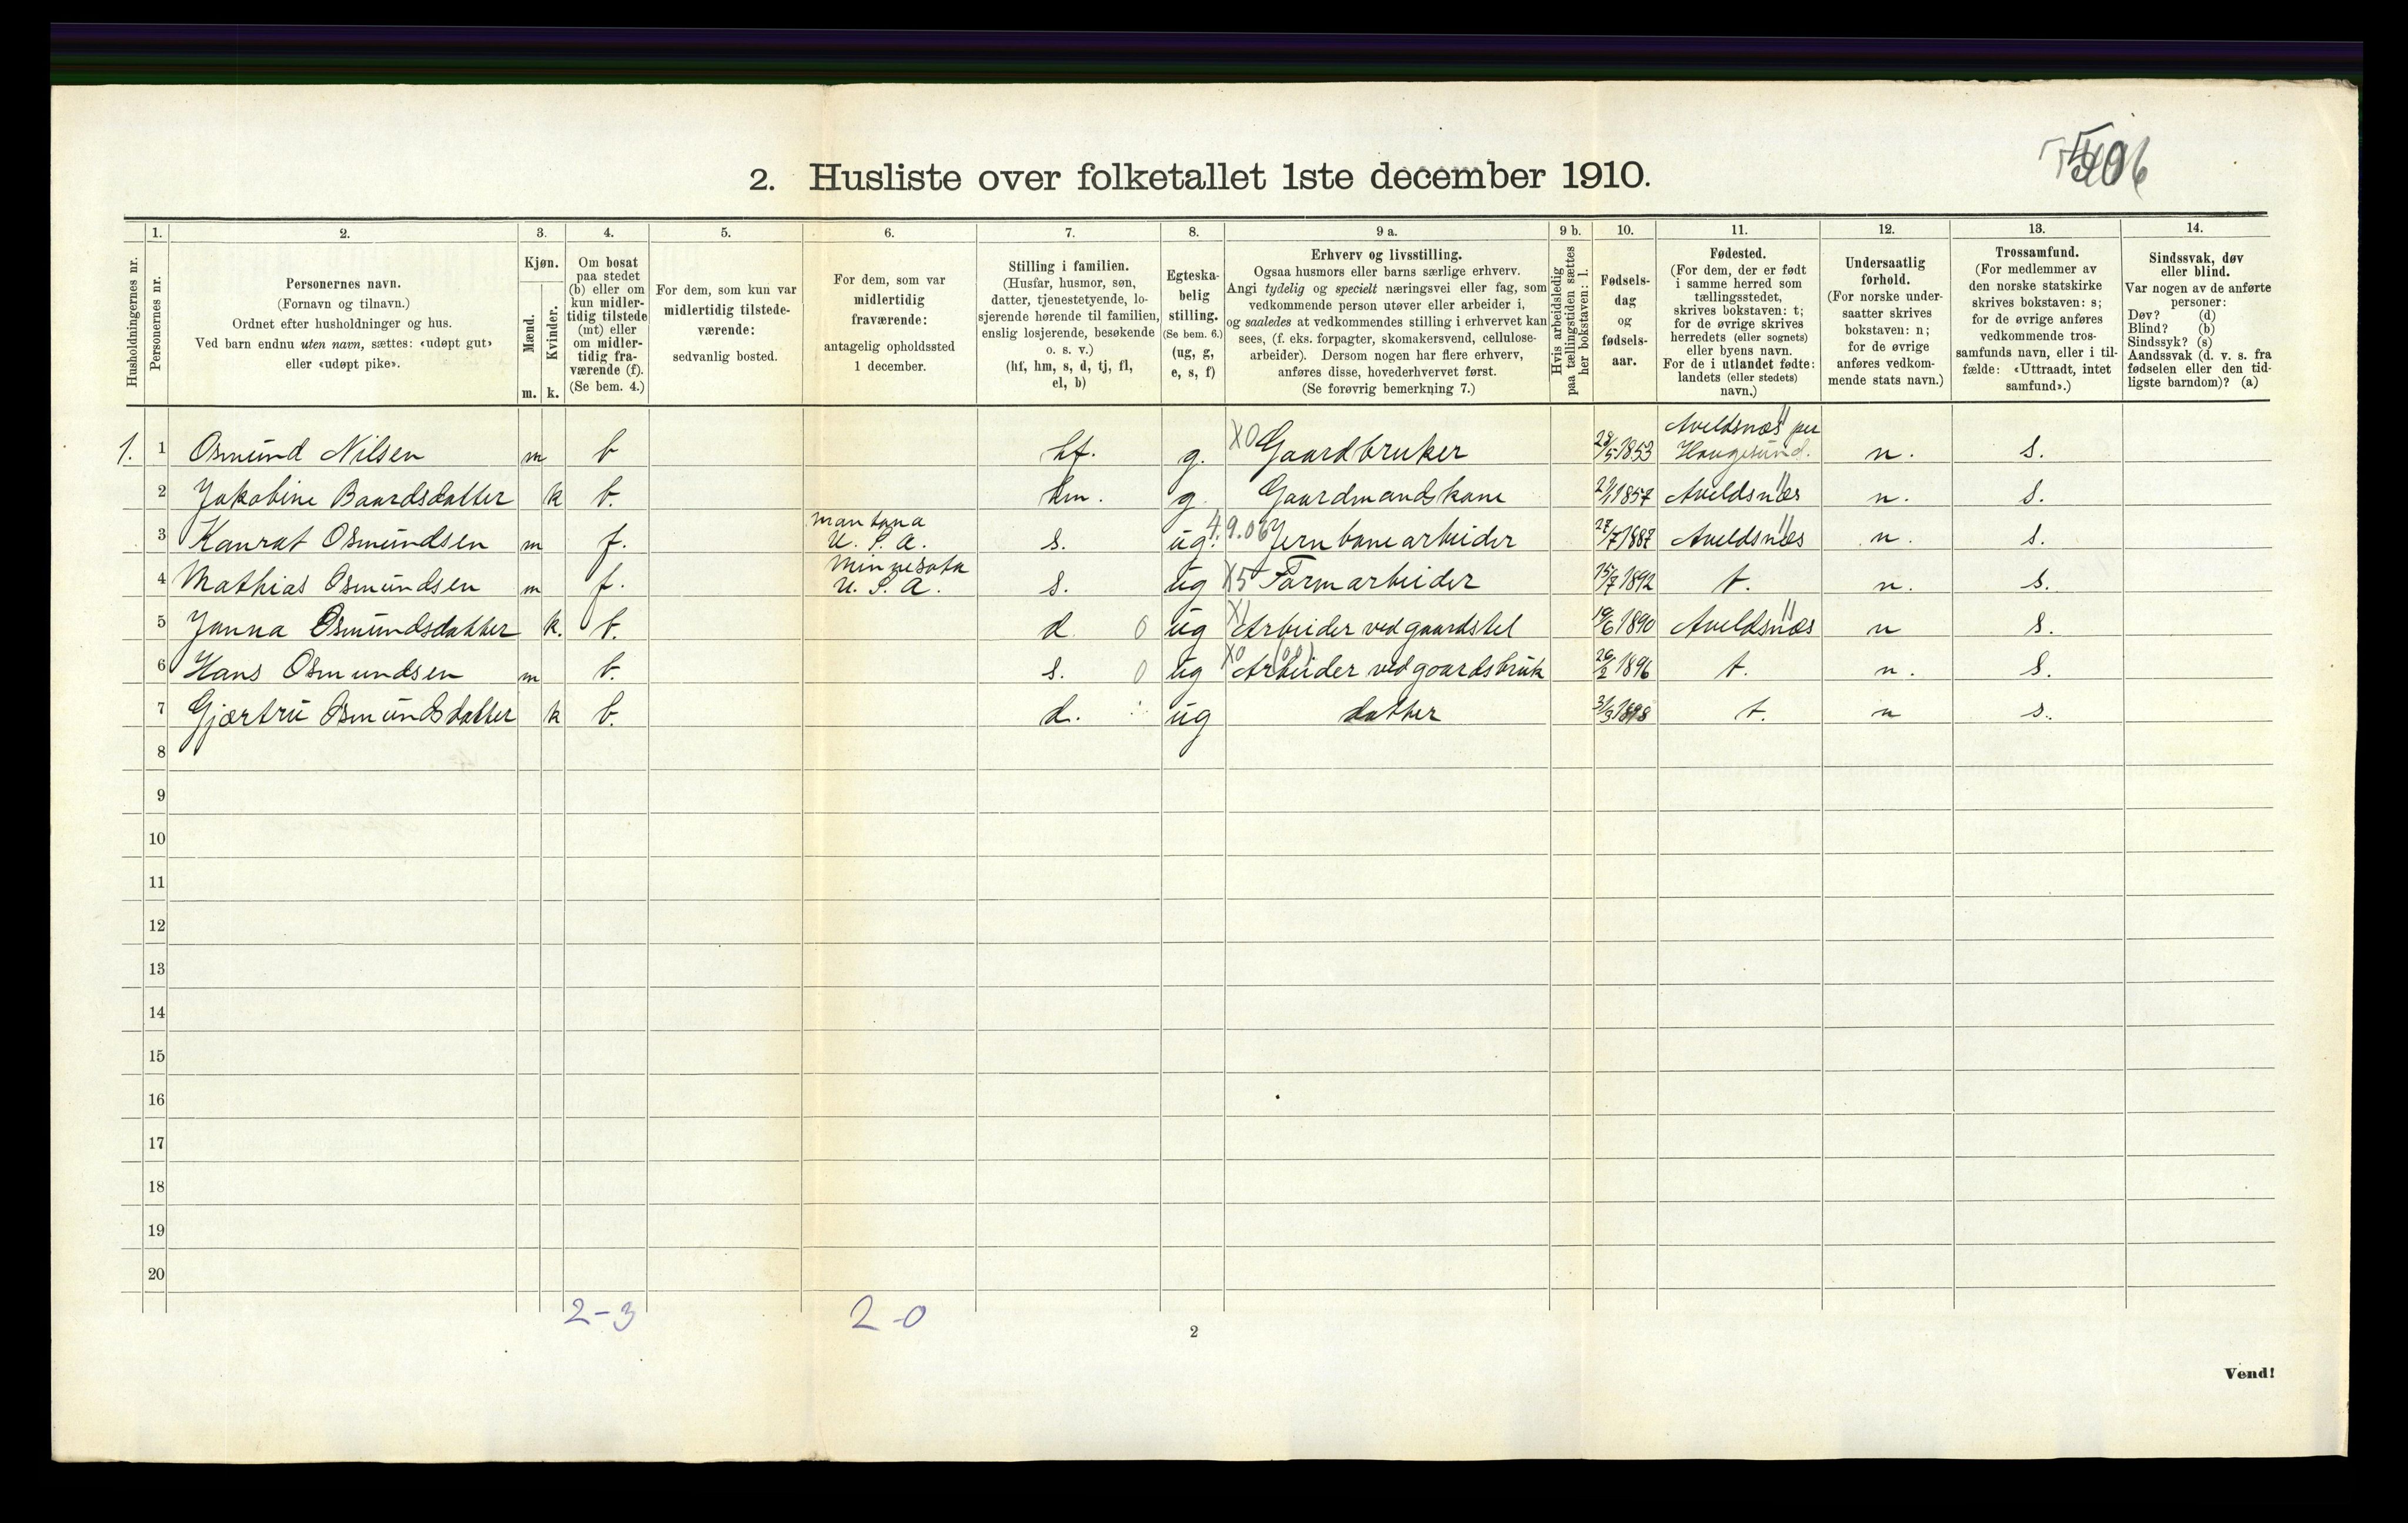 2. Husliste over folketallet 1ste december 1910.
Husholdningernes nr.
1.
Personernes nr.
2.
Personernes navn.
(Fornavn og tilnavn.)
Ordnet efter husholdninger og hus.
Ved barn endnu uten navn, sættes: «udøpt gut»
eller «udøpt pike».
3.
Kjøn.
Mænd.
Kvinder.
m. k.
4.
Om bosat
paa stedet
(b) eller om
kun midler-
tidig tilstede
(mt) eller
om midler-
tidig fra-
værende (f).
(Se bem. 4.)
5.
For dem, som kun var
midlertidig tilstede-
værende:
sedvanlig bosted.
6.
For dem, som var
midlertidig
fraværende:
antagelig opholdssted
1 december.
7.
Stilling i familien.
(Husfar, husmor, søn,
datter, tjenestetyende, lo-
sjerende hørende til familien,
enslig losjerende, besøkende
o. s. v.)
(hf, hm, s, d, tj, fl,
el, b)
8.
Egteska-
belig
stilling.
(Se bem. 6.)
(ug, g,
e, s, f)
9 a.
Erhverv og livsstilling.
Ogsaa husmors eller barns særlige erhverv.
Angi tydelig og specielt næringsvei eller fag, som
vedkommende person utøver eller arbeider i,
og saaledes at vedkommendes stilling i erhvervet kan
sees, (f. eks. forpagter, skomakersvend, cellulose-
arbeider). Dersom nogen har flere erhverv,
anføres disse, hovederhvervet først.
(Se forøvrig bemerkning 7.)
9 b.
Hvis arbeidsledig
paa tællingstiden sættes
her bokstaven: l.
10.
Fødsels-
dag
og
fødsels-
aar.
11.
Fødested.
(For dem, der er født
i samme herred som
tællingsstedet,
skrives bokstaven: t;
for de øvrige skrives
herredets (eller sognets)
eller byens navn.
For de i utlandet fødte:
landets (eller stedets)
navn.)
12.
Undersaatlig
forhold.
(For norske under-
saatter skrives
bokstaven: n;
for de øvrige
anføres vedkom-
mende stats navn.)
13.
Trossamfund.
(For medlemmer av
den norske statskirke
skrives bokstaven: s;
for de øvrige anføres
vedkommende tros-
samfunds navn, eller i til-
fælde: «Uttraadt, intet
samfund».)
14.
Sindssvak, døv
eller blind.
Var nogen av de anførte
personer:
Døv? (d)
Blind? (b)
Sindssyk? (s)
Aandssvak (d. v. s. fra
fødselen eller den tid-
ligste barndom)? (a)
1. 1 Osmund Nilsen m b hf. g. X0 Gaardbruker 28/5 1853 Aveldsnæs per Haugesund. n. s.
2 Jakobine Baardsdatter k b. hm. g Gaardmandskone 1857 Aveldsnæs n. s.
3 Konrat Osmundsen m f. Montana U. S. A. s. ug. 4.9.06 Jernbanearbeider 27/7 1887 Aveldsnæs n. s.
4 Mathias Osmundsen m f. Minnesota U. S. A. s. ug X5 Farmarbeider 15/7 1892 t. n. s.
5 Janna Osmundsdatter k. b. d. 0 ug Arbeider ved gaardstel 19/6 1890 Aveldsnæs n s.
6 Hans Osmundsen m b. s. 0 ug X0 Arbeider ved gaardsbruk 26/2 1896 t. n. s.
7 Gjærtru Osmundsdatter k b. d. ug datter 1898 t. n s.
8
9
10
11
12
13
14
15
16
17
18
19
20
2-3 2-0
2
Vend!